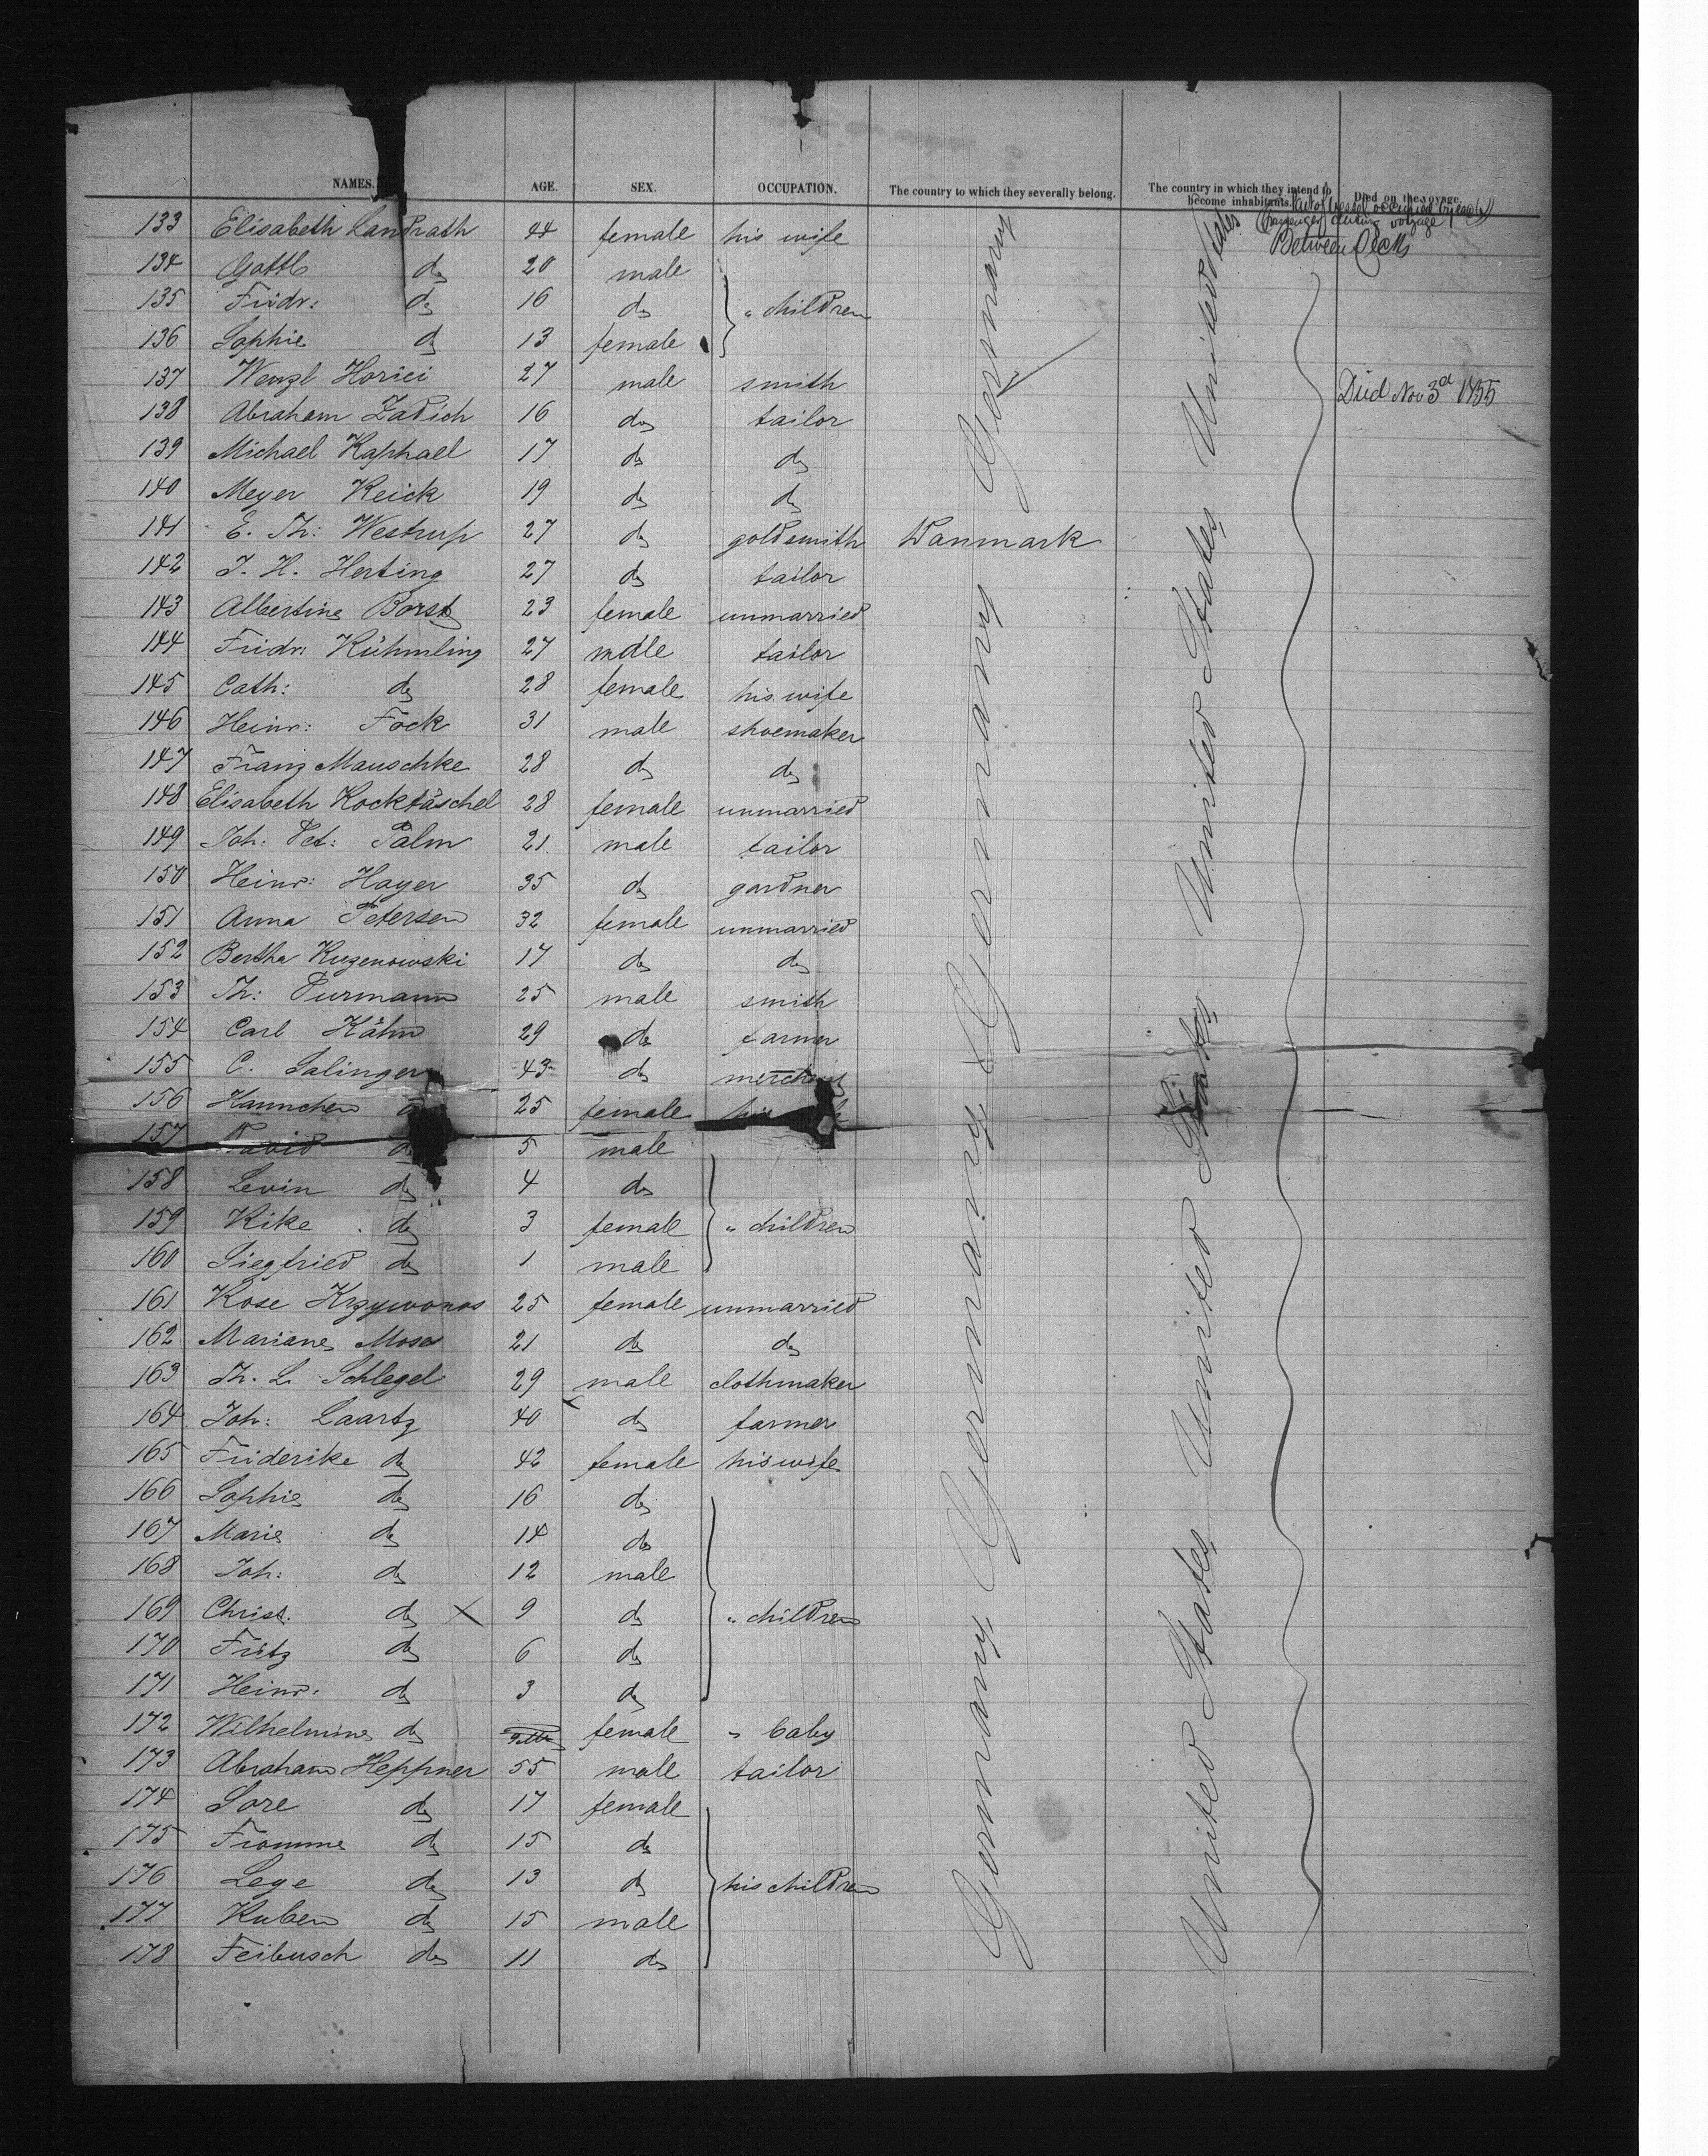 NAMES. AGE. SEX. OCCUPATION. The country to which they severally belong. The country in which they intend to become inhabitants. Died on the voyage.
(Part of vessel occupied by each passenger during voyage)
Between Decks
133 Elisabeth Landrath 44 female his wife
134 Gottl do 20 male
135 Friedr: do 16 do " children
136 Sophie do 13 female
137 Wenzl Horici 27 male smith Died Nov 3d 1855
138 Abraham Zadich 16 do tailor
139 Michael Raphael 17 do do
140 Meyer Reick 19 do do
141 E. Th: Westrup 27 do goldsmith Danmark
142 J. H. Herting 27 do tailor
143 Albertine Borst 23 female unmarried
144 Friedr: Kühmling 27 male tailor
145 Cath: do 28 female his wife
146 Heinr: Fock 31 male shoemaker
147 Franz Mauschke 28 do do
148 Elisabeth Rocktäschel 28 female unmarried
149 Joh: Pet: Palm 21 male tailor
150 Heinr: Hayer 35 do gardner
151 Anna Petersen 32 female unmarried
152 Bertha Kuzenowski 17 do do
153 Th: Purmann 25 male smith
154 Carl Kähn 29 do farmer
155 C. Salinger 43 do merchant
156 Hannchen do 25 female his
157 David do 5 male
158 Levin do 4 do
159 Rike do 3 female " children
160 Siegfried do 1 male
161 Rose Krzywonos 25 female unmarried
162 Mariane Moses 21 do do
163 Th. L. Schlegel 29 male clothmaker
164 Joh: Laartz 40 do farmer
165 Friderike do 42 female his wife
166 Sophie do 16 do
167 Marie do 14 do
168 Joh: do 12 male
169 Christ. do X 9 do " children
170 Fritz do 6 do
171 Heinr: do 3 do
172 Wilhelmine do female " baby
173 Abraham Heppner 55 male tailor
174 Lore do 17 female
175 Fromme do 15 do
176 Lege do 13 do his children
177 Ruben do 15 male
178 Feibusch do 11 do
Germany Germany Germany Germany
United States United States United States United States